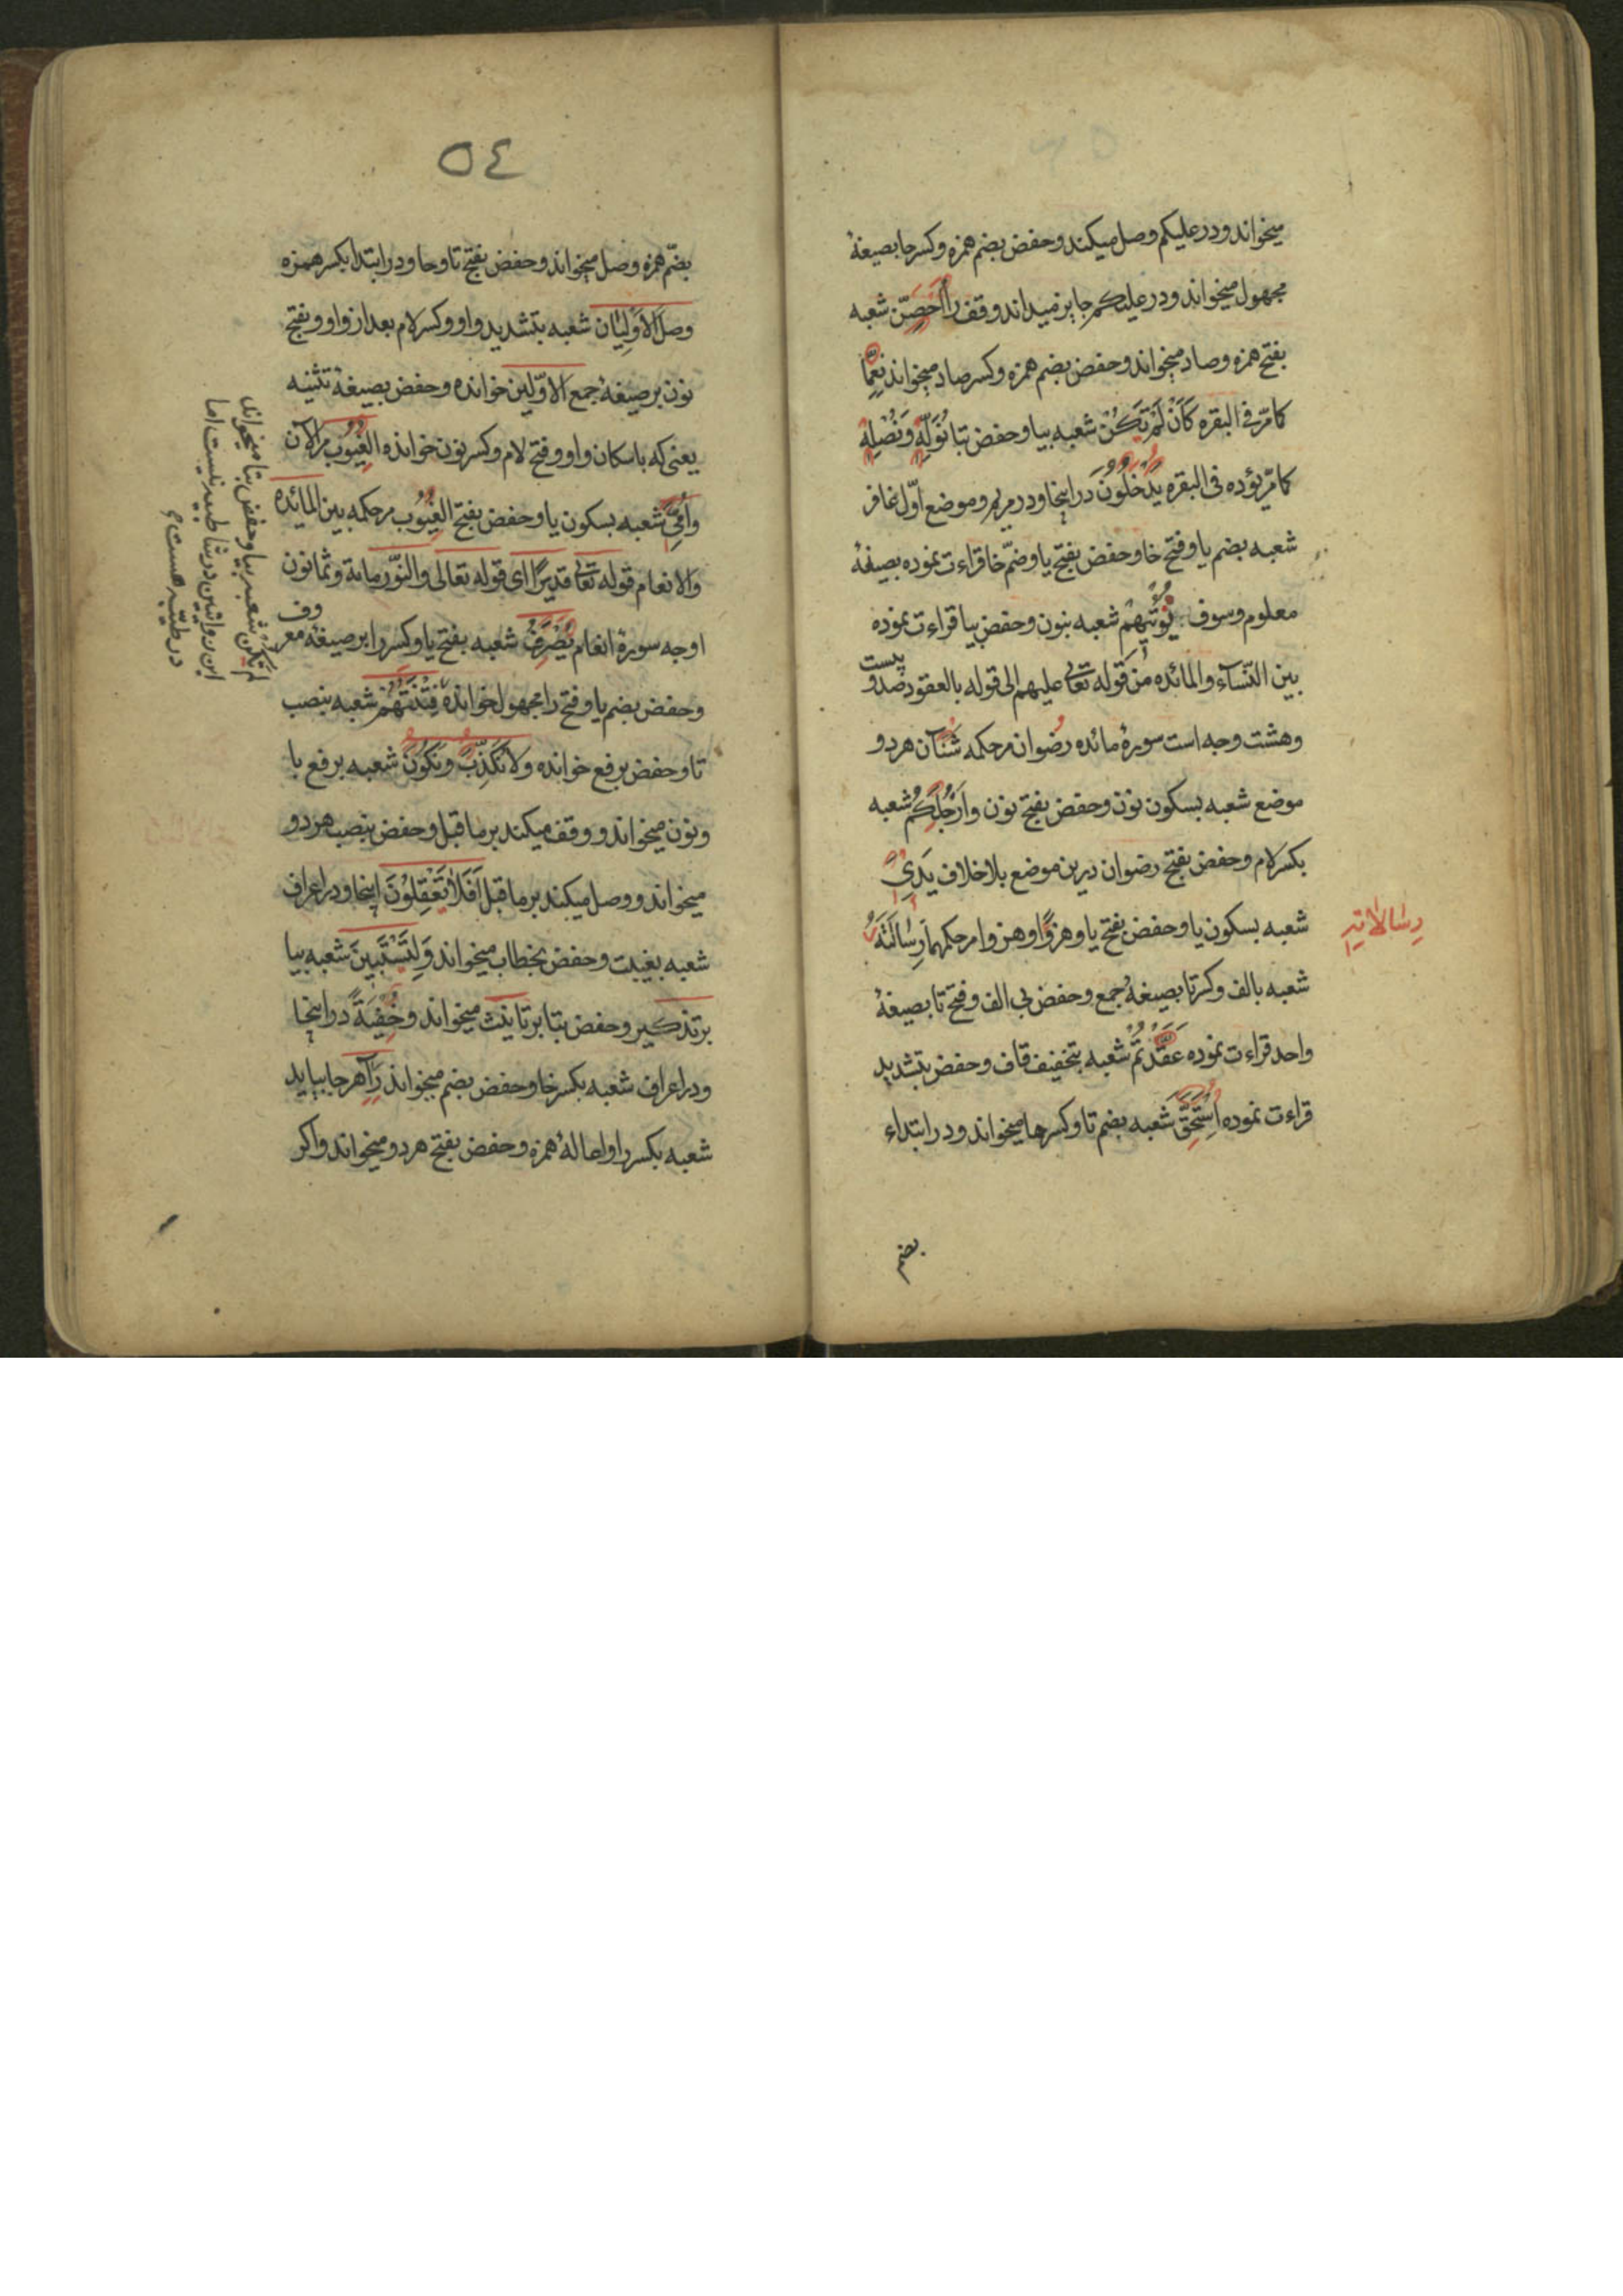 میخواند و در علیکم وصل میکند و حفض بضم همزه و کسر حا بصیغهٔ
مجهول میخواند و در علیکم جایز میداند وقف را اَحْصَنَّ شعبه
بفتح همزه و صاد میخواند و حفض بضم همزه و کسر صاد میخواند نِعِمَّا
کما مرّ فی البقره کَاَنْ لَمْ تَکُنْ شعبه بیا و حفض بتا نُوَلِّهِ وَنُصْلِهِ
کما مرّ یؤده فی البقره یَدْخُلُونَ در اینجا و در مریم و موضع اوّل غافر
شعبه بضم یا و فتح خا و حفض بفتح یا و ضمّ خا قراءت نموده بصیغهٔ
معلوم و سوف نُؤْتِیهِمْ شعبه بنون و حفض بیا قراءت نموده
بین النّساء و المائده من قوله تعالی علیهم الی قوله بالعقود صد و بیست
و هشت وجه است سورهٔ مائده رضوان مر حکمه شَنَآن هر دو
موضع شعبه بسکون نون و حفض بفتح نون وَاَرْجُلَکُم شعبه
بکسر لام و حفض بفتح رضوان درین موضع بلاخلاف یَدِیَ
شعبه بسکون یا و حفض بفتح یا و هزوًا و هزوا مر حکمهما رِسَالَتَهُ
رسالاته
شعبه بالف و کسر تا بصیغهٔ جمع و حفض بی الف و فتح تا بصیغهٔ
واحد قراءت نموده عَقَّدْتُمُ شعبه بتخفیف قاف و حفض بتشدید
قراءت نموده اسْتَحَقَّ شعبه بضم تا و کسر حا میخواند و در ابتداء
بضم
٥٤
بضمّ همزه وصل میخواند و حفض بفتح تا و حا و در ابتدا بکسر همزه
وصل اَلاَوْلَیَان شعبه بتشدید واو و کسر لام بعد از واو و بفتح
نون بر صیغهٔ جمع الاوّلین خوانده و حفض بصیغهٔ تثنیه
یعنی که باسکان واو و فتح لام و کسر نون خوانده الغیُوب مر الآن
وَاُمِّیَ شعبه بسکون یا و حفض بفتح الغیُوب مر حکمه بین المائده
والانعام قوله تعالی قدیرًا ای قوله تعالی والنّور مایة و ثمانون
اوجه سورهٔ انعام یُصْرَفْ شعبه بفتح یا و کسر را بر صیغهٔ معروف
و حفض بضم یا و فتح را مجهول خوانده فِتْنَتُهُمْ شعبه بنصب
تا و حفض برفع خوانده ولا نُکَذِّبَ وَنَکُونَ شعبه برفع با
و نون میخواند و وقف میکند بر ما قبل و حفض بنصب هر دو
میخواند و وصل میکند بر ما قبل اَفَلا تَعْقِلُوْنَ اینجا و در اعراف
شعبه بغیبت و حفض بخطاب میخواند وَلِتَسْتَبِینَ شعبه بیا
بر تذکیر و حفض بتا بر تانیث میخواند وَخُفْیَةً در اینجا
و در اعراف شعبه بکسر خا و حفض بضم میخواند رَاٰ هر جا بیاید
شعبه بکسر را و امالهٔ همزه و حفض بفتح هر دو میخواند و اکر
لم تکن شعبه بیا و حفض بتا میخواند
این روایتین در شاطبیه نیست اما
در طیّبه هست